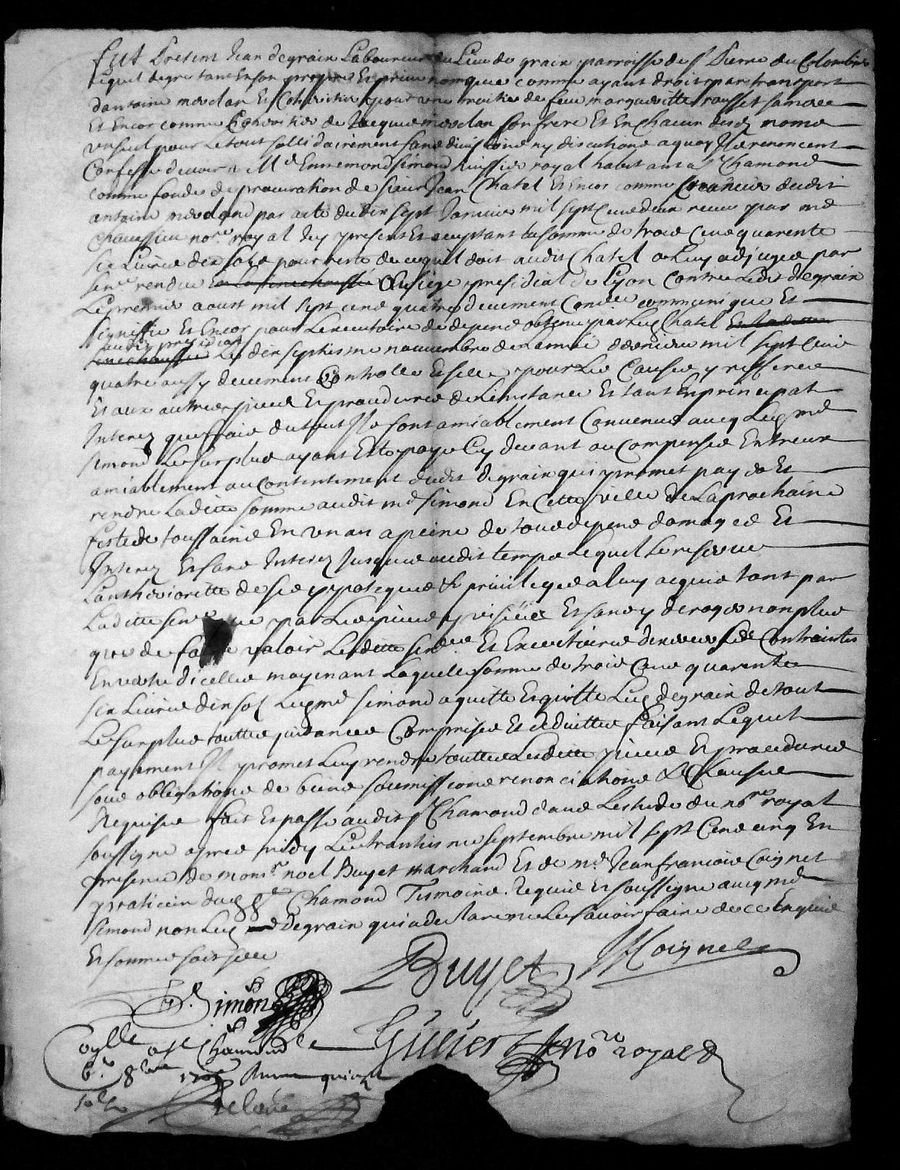 Fut present Jean degrain Laboureur du Lieu de grain parroisse de St Pierre du Colombier
Lequel de gre tant en son propre et prive nom que comme ayant droit par transport
dantoine meselan et Cohéritier pour une moitié de feue margueritte rousset sa mere
Et Encor comme heritier de Jacque meselan son frere Et En chacun desd noms
un seul pour Le tout sollidairement sans division ny discution a quoy Il renoncent
Confesse devoir a Me Ennemond Simond huissier royal habitant a St Chamond
comme fondé de procuration de sieur Jean Chatel Et Encor comme Creancier dudit
antoine par acte du dix sept Janvier mil sept Cent deux receu par me
Chaussieu nore royal Icy present Et aceptant La somme de trois Cent quarente
six Livres dix sols pour reste de ce quil doit audit Chatel a Luy adjugee par
senre rendue au siege presidial de Lyon Contre Ledit degrain
Le premier aoust mil sept cent quatre deuement Controllee communiquee Et
signiffiee Et Encor pour Lexecutoire de depens obtenu par Led Chatel
audit presidial
Le dix septiesme novembre de Lannee derniere mil sept Cent
quatre aussy deuement Controllé Et sellé pour Les Causes y refferees
Et aux autres pieces Et procedures de Linstance Et tant En principal
Interez que frais du tout Ils sont amiablement Convenus avec Led me
simond Le surplus ayant Esté payé Cy devant ou Compensé Entreux
amiablement au contentement dudit degrain qui promet payer Et
rendre Ladite somme audit me simond En Cette ville de La prochaine
feste de toussaint En un an a peine de tous depens damages Et
Interez Et sans Interez Jusques audit temps Lequel se reserve
Lantheriorette de ses ypoteques & privileges a luy acquis tant par
Ladite par Les pieces precisees Et sans y deroger non plus
que de faire valoir Lesdites Et Executoires de
En vertu dicelles moyenant Laquelle somme de trois Cent quarente
six Livres dix sols Led me simond a quitté Et quitte Led degrain de tout
Le surplus touttes quitances Comprises Et reduittes faisant Lequel
payement Il promet Luy rendre touttes Lesdites pieces Et procedures
sous obligations de biens soumissions renonciations & Clauses
Requises fait Et passé audit St Chamond dans Lestude du nore royal
soussigné apres midy Le trantiesme septembre mil sept Cent Cinq En
presence de monsr noel Buyet marchand Et de me Jean françois Coignet
praticien dudit St Chamond Tesmoins requis Et soussignés avec me
simond non Led degrain qui a declaré ne Le scavoir faire de ce Enquis
Et sommé
Buyet JfCoignet
E. Simon
Collé a St Chamond Le
nore royal
8bre